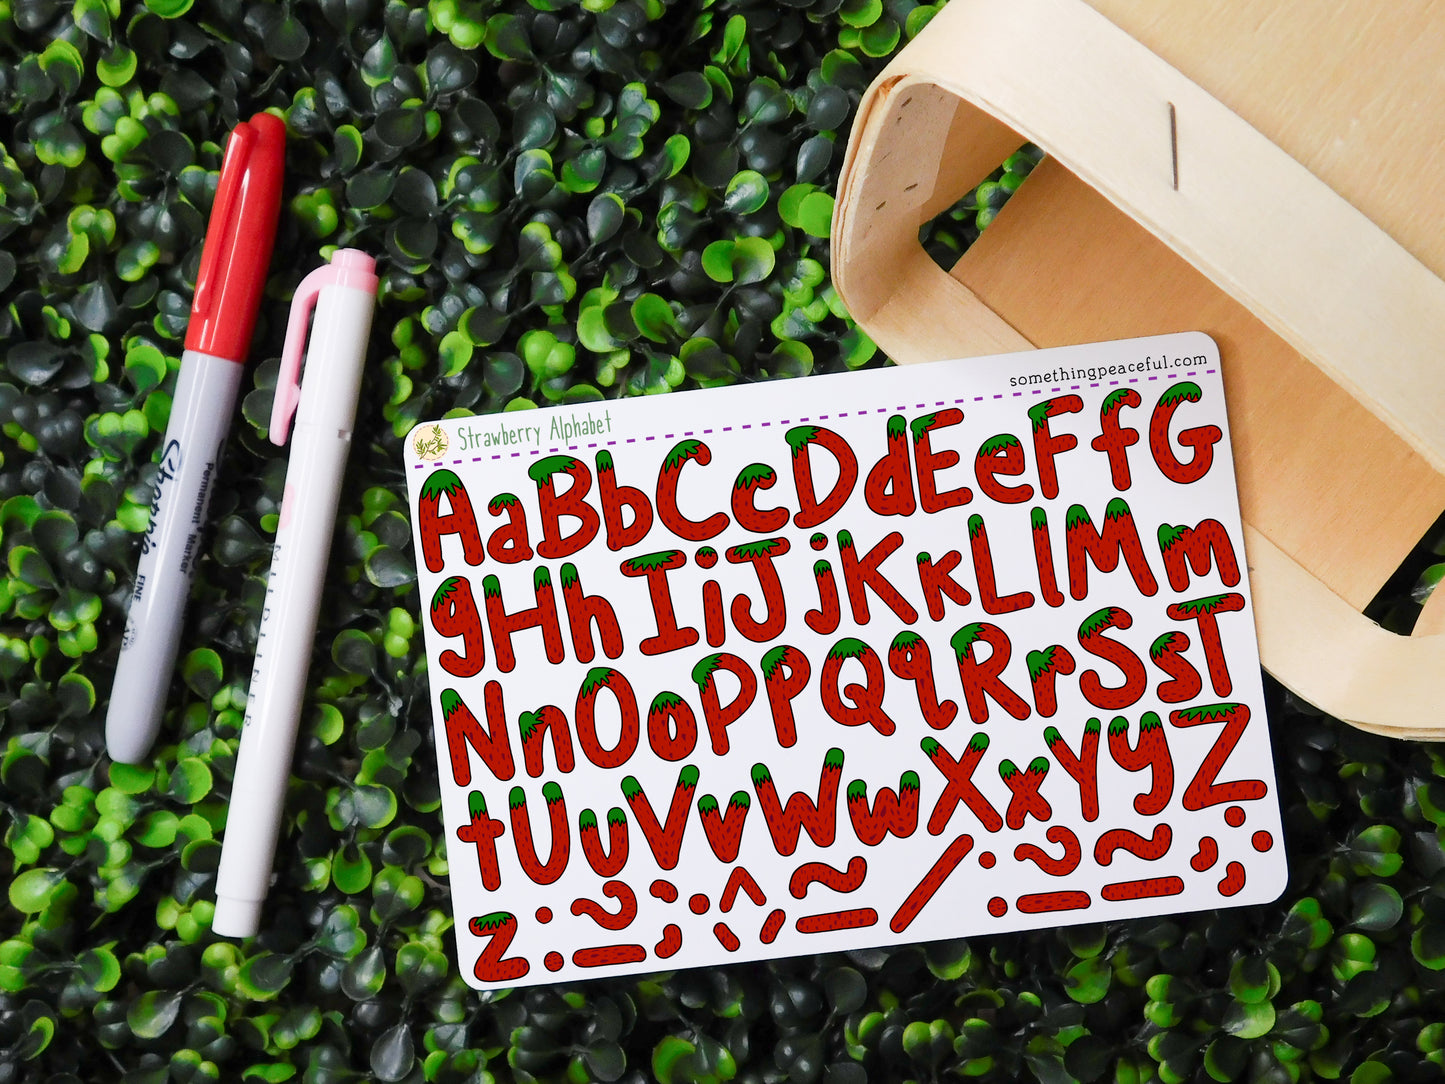 somethingpeaceful.com
Strawberry Alphabet
AaBbCcDdEeFfG
gHhIiJjKkLlMm
NnOoPpQqRrSsT
tUuVvWwXxYyZ
z
Sharpie
FINE
Permanent Marker
MILDLINER